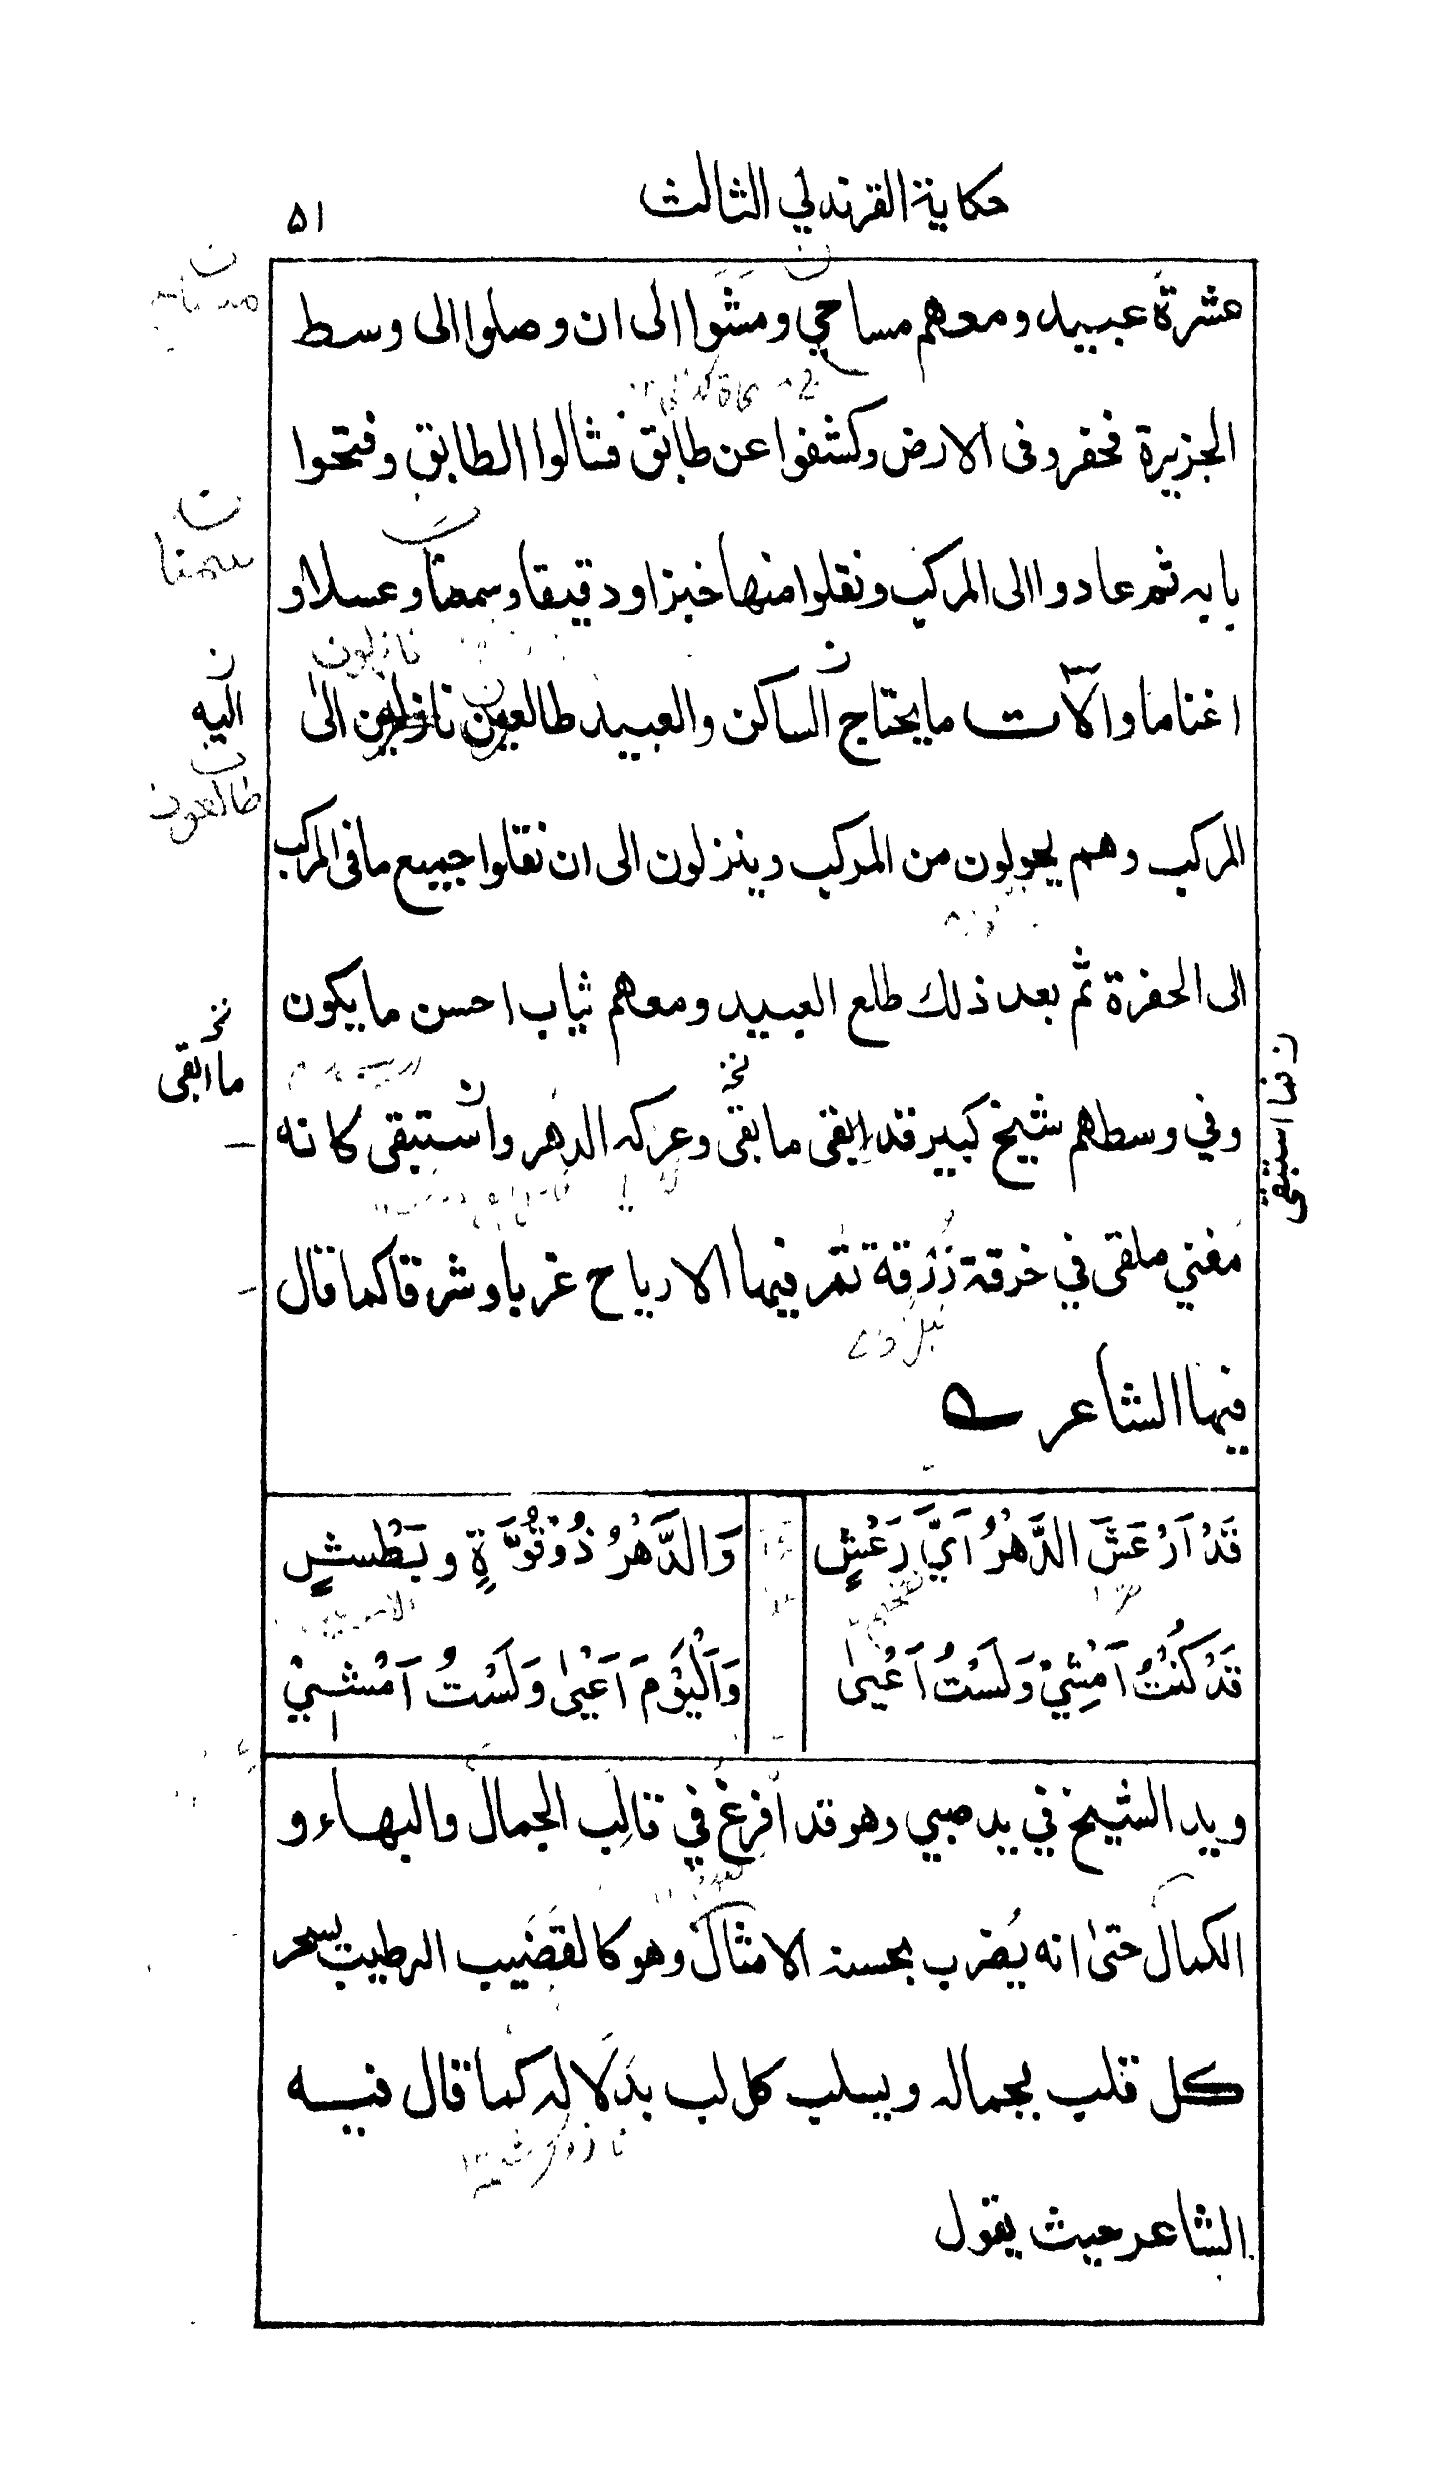 حكاية القرندلي الثالث
٥١
عشرة عبيد ومعهم مساحي ومشوا الى ان وصلوا الى وسط
الجزيرة فحفروفى الارض وكشفوا عن طابق فشالوا الطابق وفتحوا
بابه ثم عادوا الى المركب ونقلوا منها خبزا ودقيقا وسمنا وعسلا و
اغناما والآت ما يحتاج الساكن والعبيد طالعين نازلين الى
المركب وهم يحولون من المركب وينزلون الى ان نقلوا جميع ما فى المركب
الى الحفرة ثم بعد ذلك طلع العبيد ومعهم ثياب احسن ما يكون
وفي وسطهم شيخ كبير قد ابقى ما بقى وعركه الدهر واستبقى كانه
مغني ملقى في خرقة زرقة تمر فيها الارياح غربا وشرقا كما قال
فيها الشاعر
قَدْ اَرْعَشَ الدَّهْرُ اَيَّ رَعْشٍ
وَالدَّهْرُ ذُوْ قُوَّةٍ وبَطْشٍ
قَدْ كُنْتُ اَمْشِيْ وَلَسْتُ اَعْيىٰ
وَاَلْيَوْمَ اَعْيىٰ وَلَسْتُ اَمْشِيْ
ويد الشيخ في يد صبي وهو قد اُفرغ في قالِب الجمال والبهاء و
الكمال حتىٰ انه يُضرب بحسنه الامثال وهو كالقضيب الرطيب يسحر
كل قلب بجماله ويسلب كل لب بدَلاله كما قال فيه
الشاعر حيث يقول
ن
سمنا
ن
اليه
ن
طالعون
نازلون
نخ
ما ابقى
ن فما استبقى